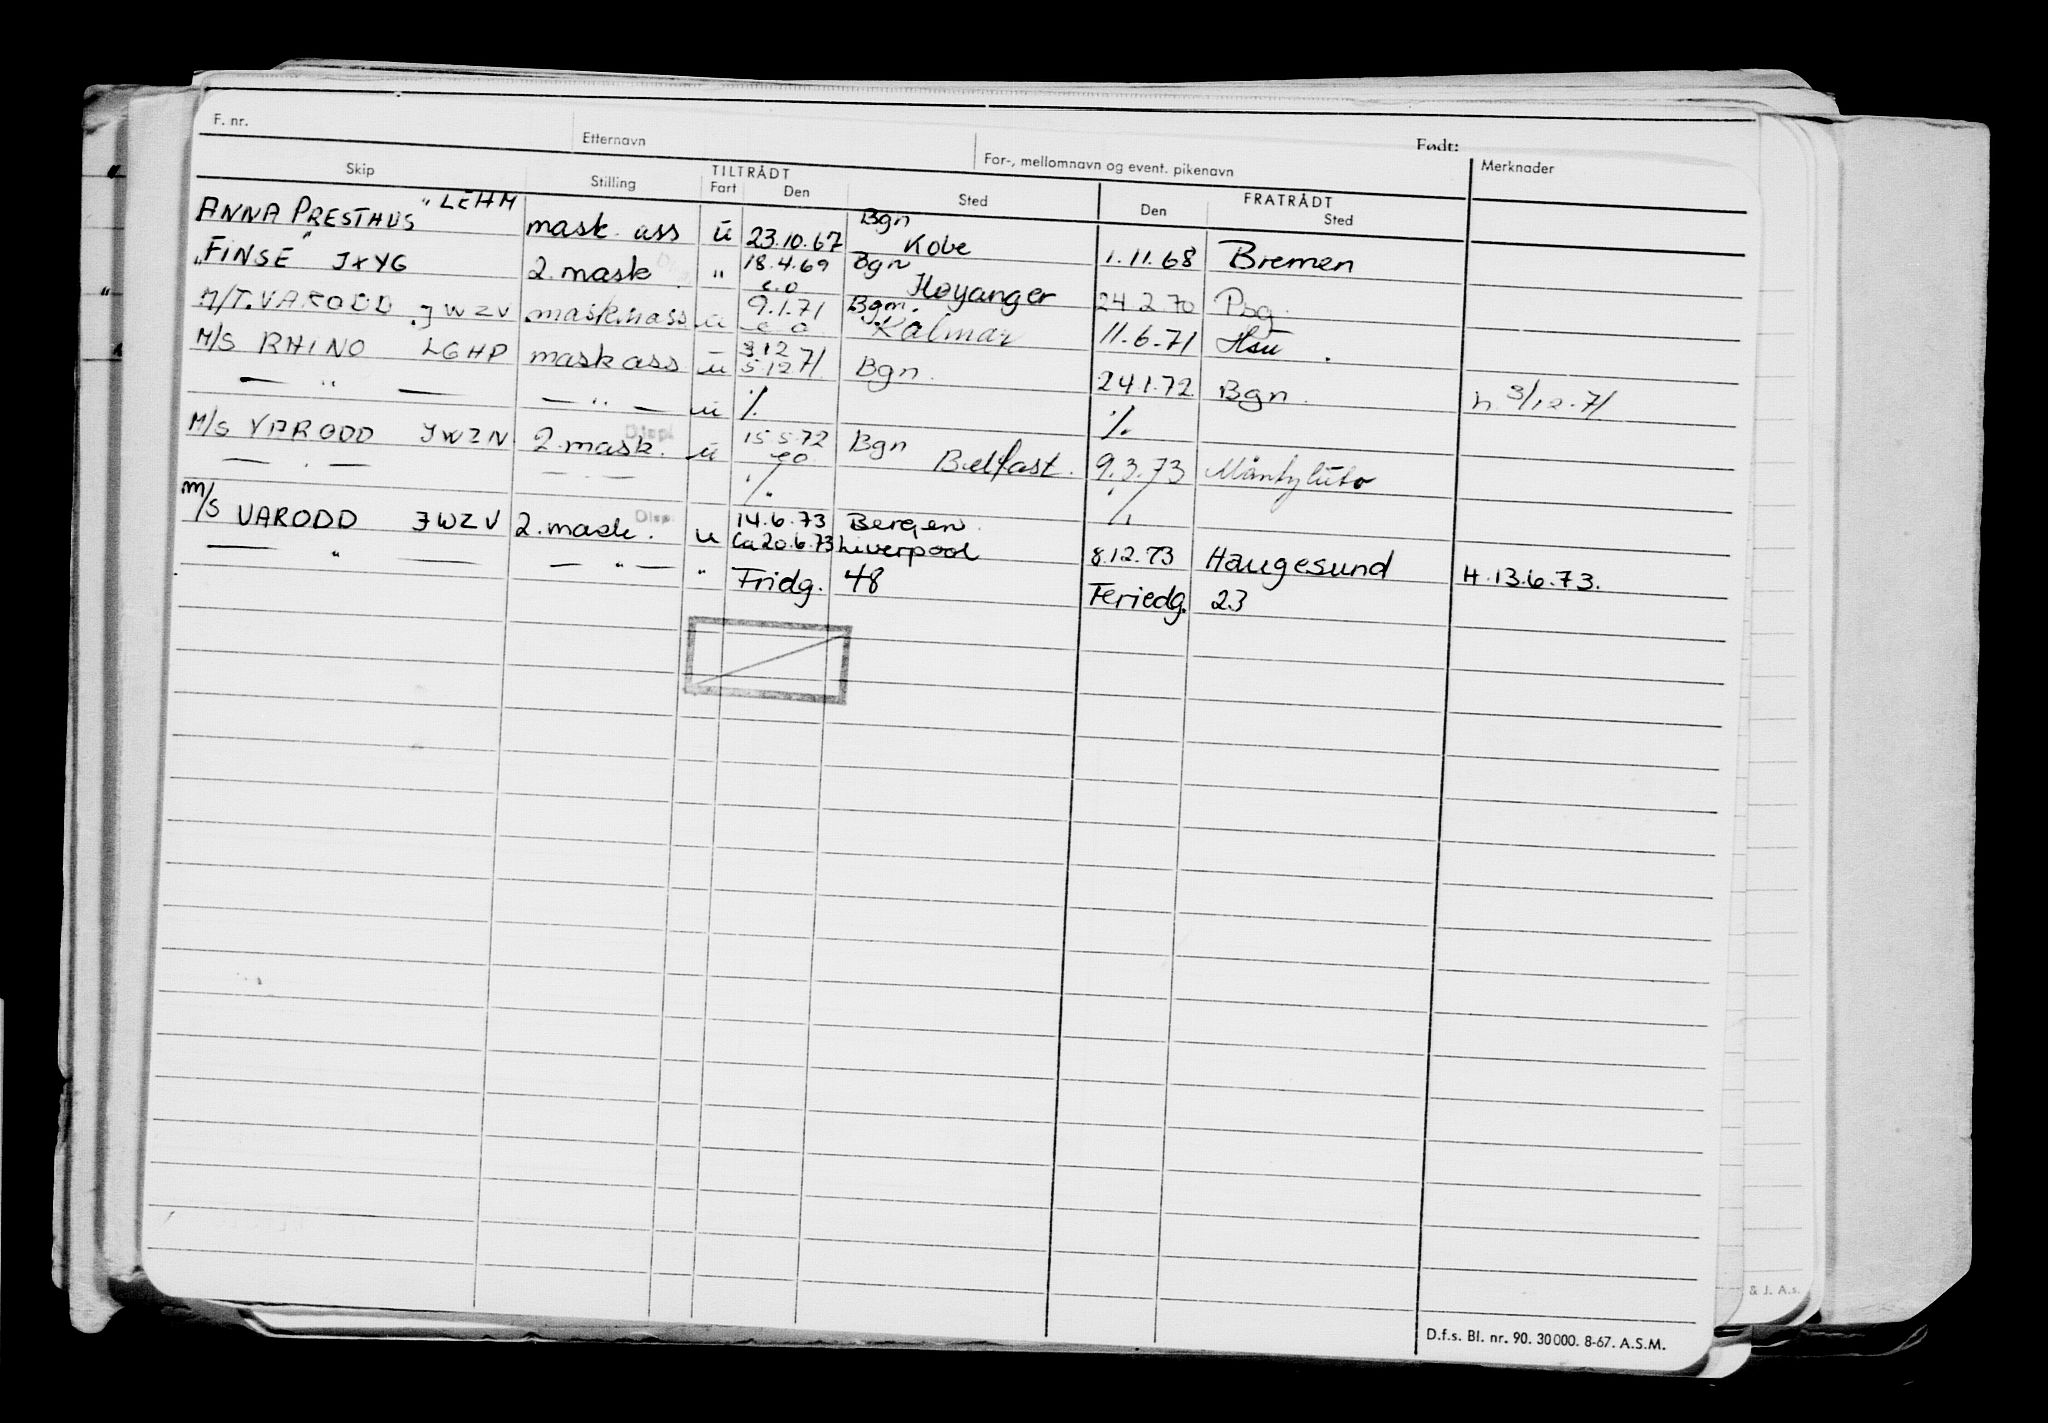 F. nr. Etternavn For-, mellomnavn og event. pikenavn Født: Merknader
Skip Stilling TILTRÅDT FRATRÅDT
Fart Den Sted Den Sted
ANNA PRESTHUS " LEHM mask. ass ū 23.10.67 Bgn Kobe 1.11.68 Bremen
"FINSE" JXYG 2. mask. Displ. " 18.4.69 Bgn Høyanger 24.2.70 Psg.
e.o
M/T. VARODD JWZV mask.ass u 9.1.71 Bgn. Kalmar 11.6.71 Hsu.
e o
M/S RHINO LGHP mask ass ū 3.12 Bgn. 24.1.72 Bgn. h 3/12-71
5.12.71
— " — — " — ū ·/. ·/.
M/S VARODD JWZN 2. mask. Displ. ū 15.5.72 Bgn Belfast. 9.3.73 Mäntyluto
eo
— . — — — ·/. ·/.
M/S VARODD JWZV 2. mask. Disp. u 14.6.73 Bergen 8.12.73 Haugesund H. 13.6.73.
Ca 20.6.73 Liverpool
— " — — " — " Fridg. 48 Feriedg. 23
& J. A.s.
D.f.s. Bl. nr. 90. 30000. 8-67. A.S.M.